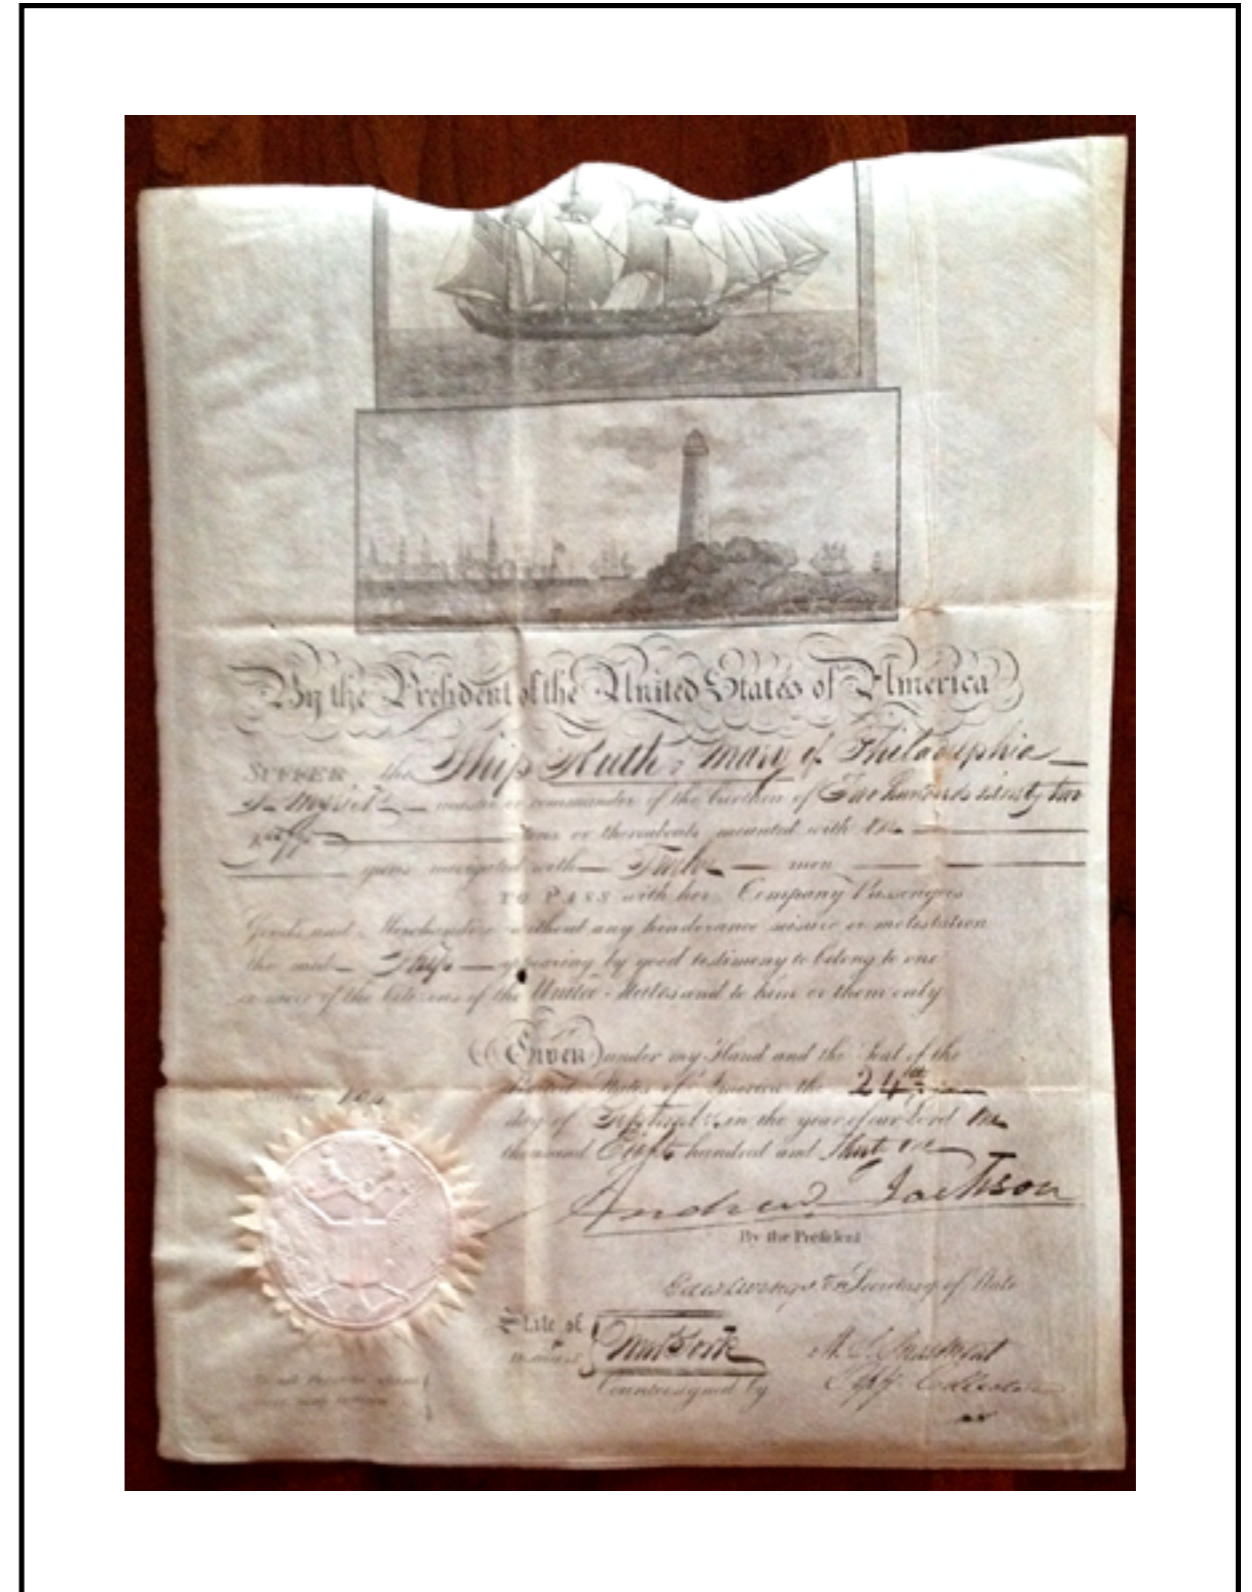 By the President of the United States of America
SUFFER the Ship Ruth & Mary of Philadelphia
master or commander of the burthen of Two hundred ninety two
tons or thereabouts mounted with no
guns navigated with Twelve men
TO PASS with her Company Passengers
Goods and Merchandize without any hinderance seisure or molestation
the said Ship appearing by good testimony to belong to one
or more of the Citizens of the United States and to him or them only
Given under my Hand and the Seal of the
United States of America the 24th
day of Septembr in the year of our Lord one
thousand Eight hundred and thirty one
Andrew Jackson
By the President
Edw Livingston Secretary of State
State of
New York
District
Countersigned by
Depy Collector